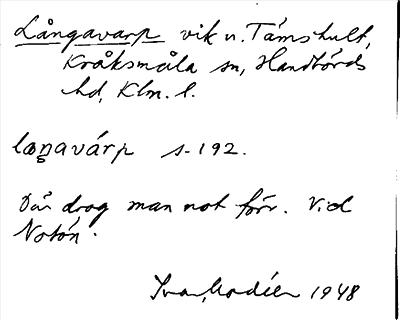 Långavarp vik v. Tämshult,
Kråksmåla sn, Handbörds
hd, Klm. l.
læŋavárp s. 192.
Där drog man not förr. Vid
Notön.
Ivar Modéer 1948